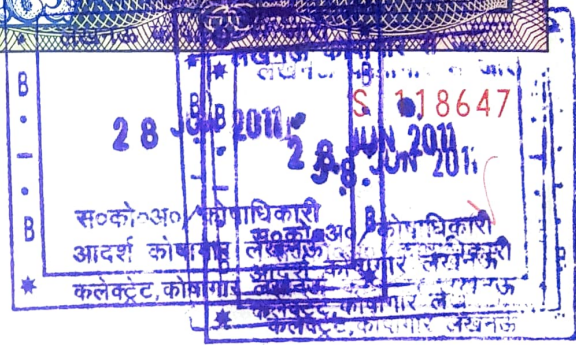 लखनऊ कोषागार से जारी
S 118647
28 JUN 2011
28 JUN 2011
28 JUN 2011
स०को०अ०/कोषाधिकारी
आदर्श कोषागार लखनऊ
कलेक्ट्रेट,कोषागार लखनऊ
स०को०अ०/कोषाधिकारी
आदर्श कोषागार लखनऊ
कलेक्ट्रेट,कोषागार लखनऊ
कलेक्ट्रेट,कोषागार लखनऊ